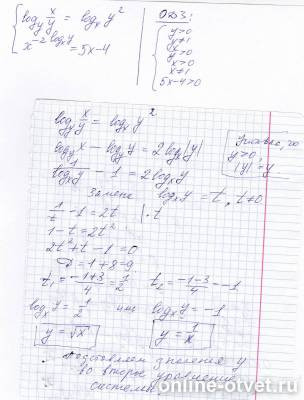 log_y x/y = log_x y²
x^(-2 log_x y) = 5x-4
ОДЗ:
y>0
y≠1
y>0
x>0
x≠1
5x-4>0
log_y x/y = log_x y²
log_y x - log_y y = 2log_x|y|
1/log_x y - 1 = 2log_x y
y>0,
|y|=y
Замена log_x y = t, t≠0
1/t - 1 = 2t | ·t
1-t=2t²
2t²+t-1=0
D=1+8=9
t₁= (-1+3)/4 = 1/2 t₂= (-1-3)/4 = -1
log_x y = 1/2 или log_x y = -1
y=√x y=1/x
Подставляем значения y
во второе уравнение
системы
online-otvet.ru